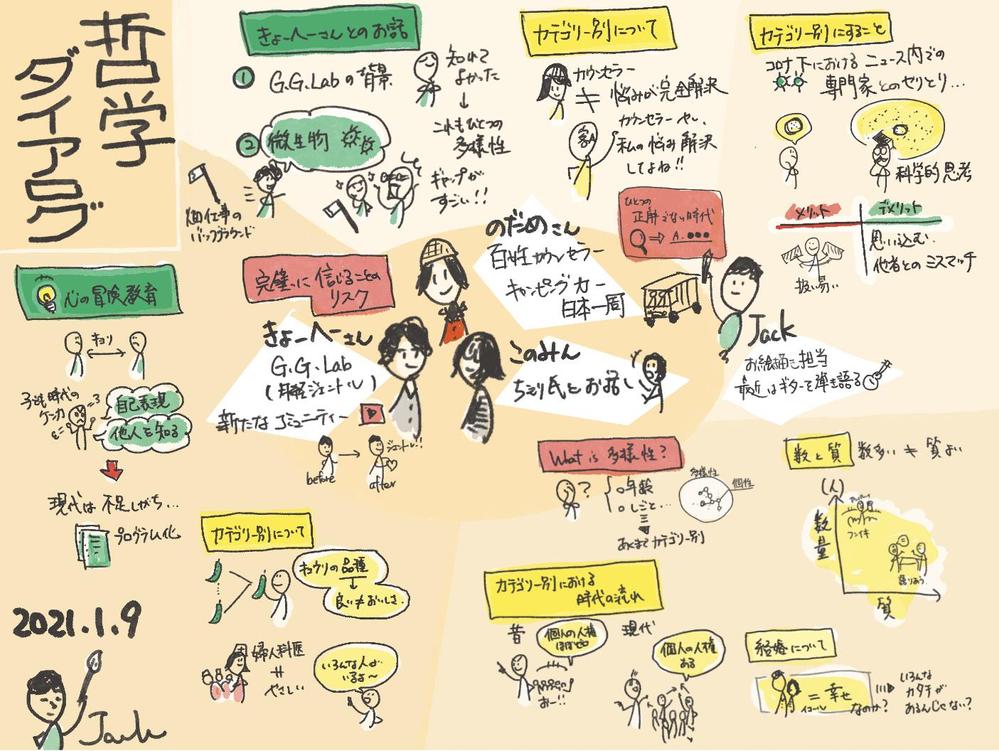 哲学
ダイアログ
きょーへーさんとのお話
① G.G.Labの背景
② 微生物
畑仕事の
バックグラウンド
知れて
よかった
↓
これもひとつの
多様性
ギャップが
すごい!!
カテゴリー別について
カウンセラー
≠ 悩みが完全解決
カウンセラーやし、
私の悩み解決
してよね!!
カテゴリー別にすること
コロナ下における ニュース内での
専門家とのやりとり…
科学的思考
メリット
デメリット
扱い易い
思い込む、
他者とのミスマッチ
心の冒険教育
キョリ
子ども時代の
ケンカ
自己表現
他人を知る
現代は不足しがち…
プログラム化
完璧に信じることの
リスク
きょーへーさん
G.G.Lab
新たなコミュニティー
before
after
ジェントル!!
のだめさん
百性カウンセラー
キャンピングカー
日本一周
ひとつの
正解がない時代
⇒ A. ●●●
このみん
Jack
お絵描き担当
最近はギターで弾き語る
What is 多様性?
?
○年齢
○しごと…
あくまでカテゴリー別
多様性
個性
数と質
数多い ≠ 質よい
(人)
数量
質
語りあう
カテゴリー別について
キュウリの品種
↓
良い≠おいしさ
婦人科医
≠
やさしい
いろんな人が
いるよ〜
カテゴリー別における
時代の流れ
昔
個人の人権
ほぼゼロ
おー!!
現代
個人の人権
ある
結婚について
= 幸せ
イコール
なのか?
いろんな
カタチが
あるんじゃない?
2021.1.9
Jack